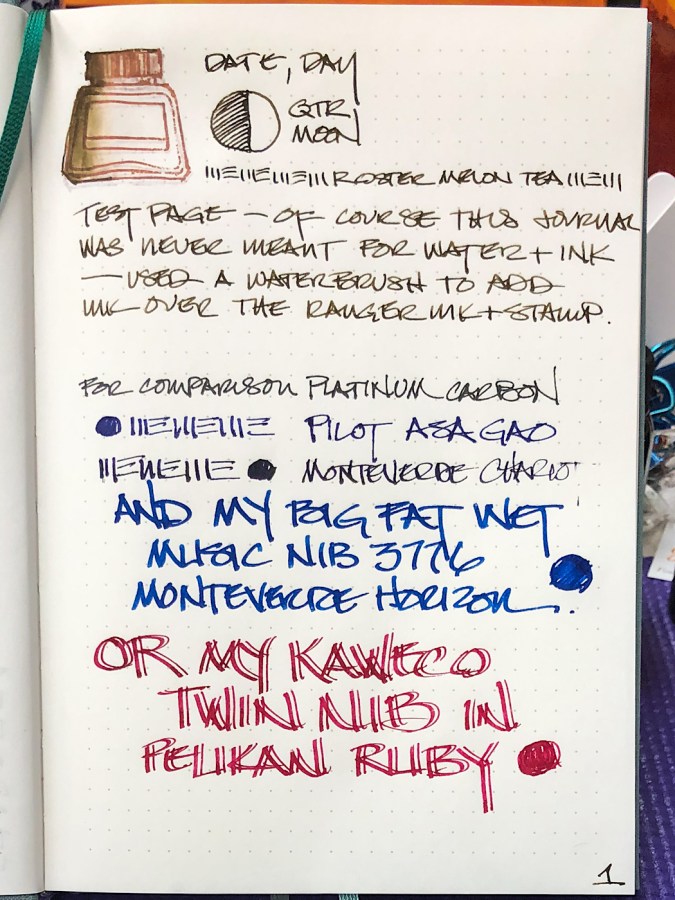 DATE, DAY
QTR
MOON
ROSTER MELON TEA
TEST PAGE — OF COURSE THIS JOURNAL
WAS NEVER MEANT FOR WATER + INK
— USED A WATERBRUSH TO ADD
INK OVER THE RANGER INK + STAMP.
FOR COMPARISON PLATINUM CARBON
PILOT ASA GAO
MONTEVERDE CHARO
AND MY BIG FAT WET
MUSIC NIB 3776
MONTEVERDE HORIZON .
OR MY KAWECO
TWIN NIB IN
PELIKAN RUBY
1